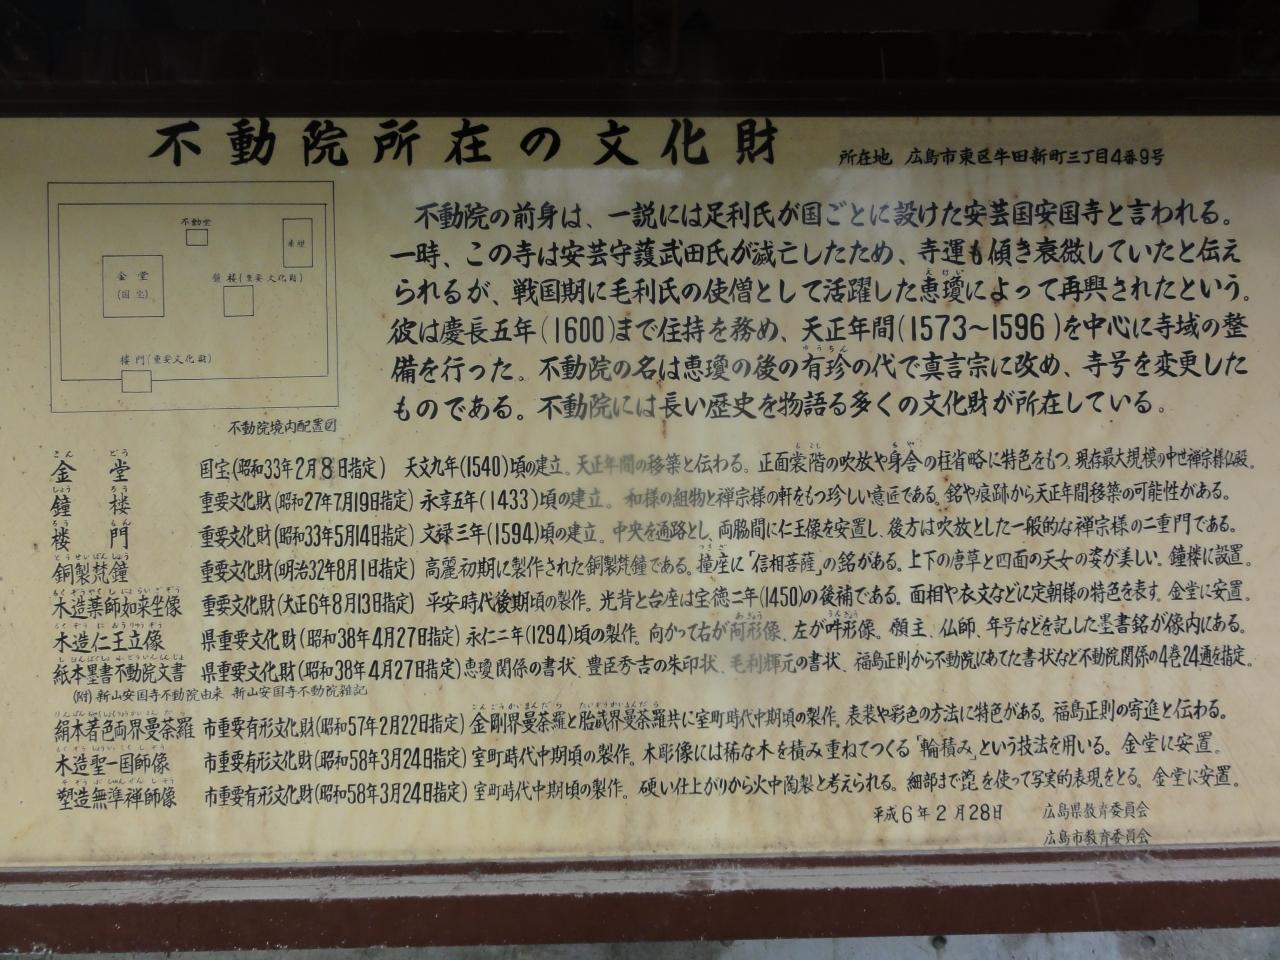 不動院所在の文化財
所在地 広島市東区牛田新町三丁目4番9号
不動堂
金堂
(国宝)
鐘楼(重要文化財)
楼門(重要文化財)
不動院境内配置図
不動院の前身は、一説には足利氏が国ごとに設けた安芸国安国寺と言われる。
一時、この寺は安芸守護武田氏が滅亡したため、寺運も傾き衰微していたと伝え
られるが、戦国期に毛利氏の使僧として活躍した恵瓊によって再興されたという。
えけい
彼は慶長五年(1600)まで住持を務め、天正年間(1573~1596)を中心に寺域の整
備を行った。不動院の名は恵瓊の後の有珍の代で真言宗に改め、寺号を変更した
ゆうちん
ものである。不動院には長い歴史を物語る多くの文化財が所在している。
こんどう
金堂 国宝(昭和33年2月8日指定) 天文九年(1540)頃の建立。天正年間の移築と伝わる。正面裳階の吹放や身舎の柱省略に特色をもつ。現存最大規模の中世禅宗様仏殿。
もこし もや
しょうろう
鐘楼 重要文化財(昭和27年7月19日指定) 永享五年(1433)頃の建立。和様の組物と禅宗様の軒をもつ珍しい意匠である。銘や痕跡から天正年間移築の可能性がある。
ろうもん
楼門 重要文化財(昭和33年5月14日指定) 文禄三年(1594)頃の建立。中央を通路とし、両脇間に仁王像を安置し、後方は吹放とした一般的な禅宗様の二重門である。
どうせいぼんしょう
銅製梵鐘 重要文化財(明治32年8月1日指定) 高麗初期に製作された銅製梵鐘である。撞座に「信相菩薩」の銘がある。上下の唐草と四面の天女の姿が美しい。鐘楼に設置。
つきざ
もくぞうやくしにょらいざぞう
木造薬師如来坐像 重要文化財(大正6年8月13日指定) 平安時代後期頃の製作。光背と台座は宝徳二年(1450)の後補である。面相や衣文などに定朝様の特色を表す。金堂に安置。
もくぞうにおうりゅうぞう
木造仁王立像 県重要文化財(昭和38年4月27日指定) 永仁二年(1294)頃の製作。向かって右が阿形像、左が吽形像。願主、仏師、年号などを記した墨書銘が像内にある。
あぎょう うんぎょう
しほんぼくしょふどういんもんじょ
紙本墨書不動院文書 県重要文化財(昭和38年4月27日指定) 恵瓊関係の書状、豊臣秀吉の朱印状、毛利輝元の書状、福島正則から不動院にあてた書状など不動院関係の4巻24通を指定。
(附) 新山安国寺不動院由来 新山安国寺不動院雑記
けんぽんちゃくしょくりょうかいまんだら
絹本著色両界曼荼羅 市重要有形文化財(昭和57年2月22日指定) 金剛界曼荼羅と胎蔵界曼荼羅共に室町時代中期頃の製作。表装や彩色の方法に特色がある。福島正則の寄進と伝わる。
こんごうかいまんだら たいぞうかいまんだら
木造聖一国師像 市重要有形文化財(昭和58年3月24日指定) 室町時代中期頃の製作。木彫像には稀な木を積み重ねてつくる「輪積み」という技法を用いる。金堂に安置。
塑造無準禅師像 市重要有形文化財(昭和58年3月24日指定) 室町時代中期頃の製作。硬い仕上がりから火中陶製と考えられる。細部まで箆を使って写実的表現をとる。金堂に安置。
平成6年2月28日 広島県教育委員会
広島市教育委員会